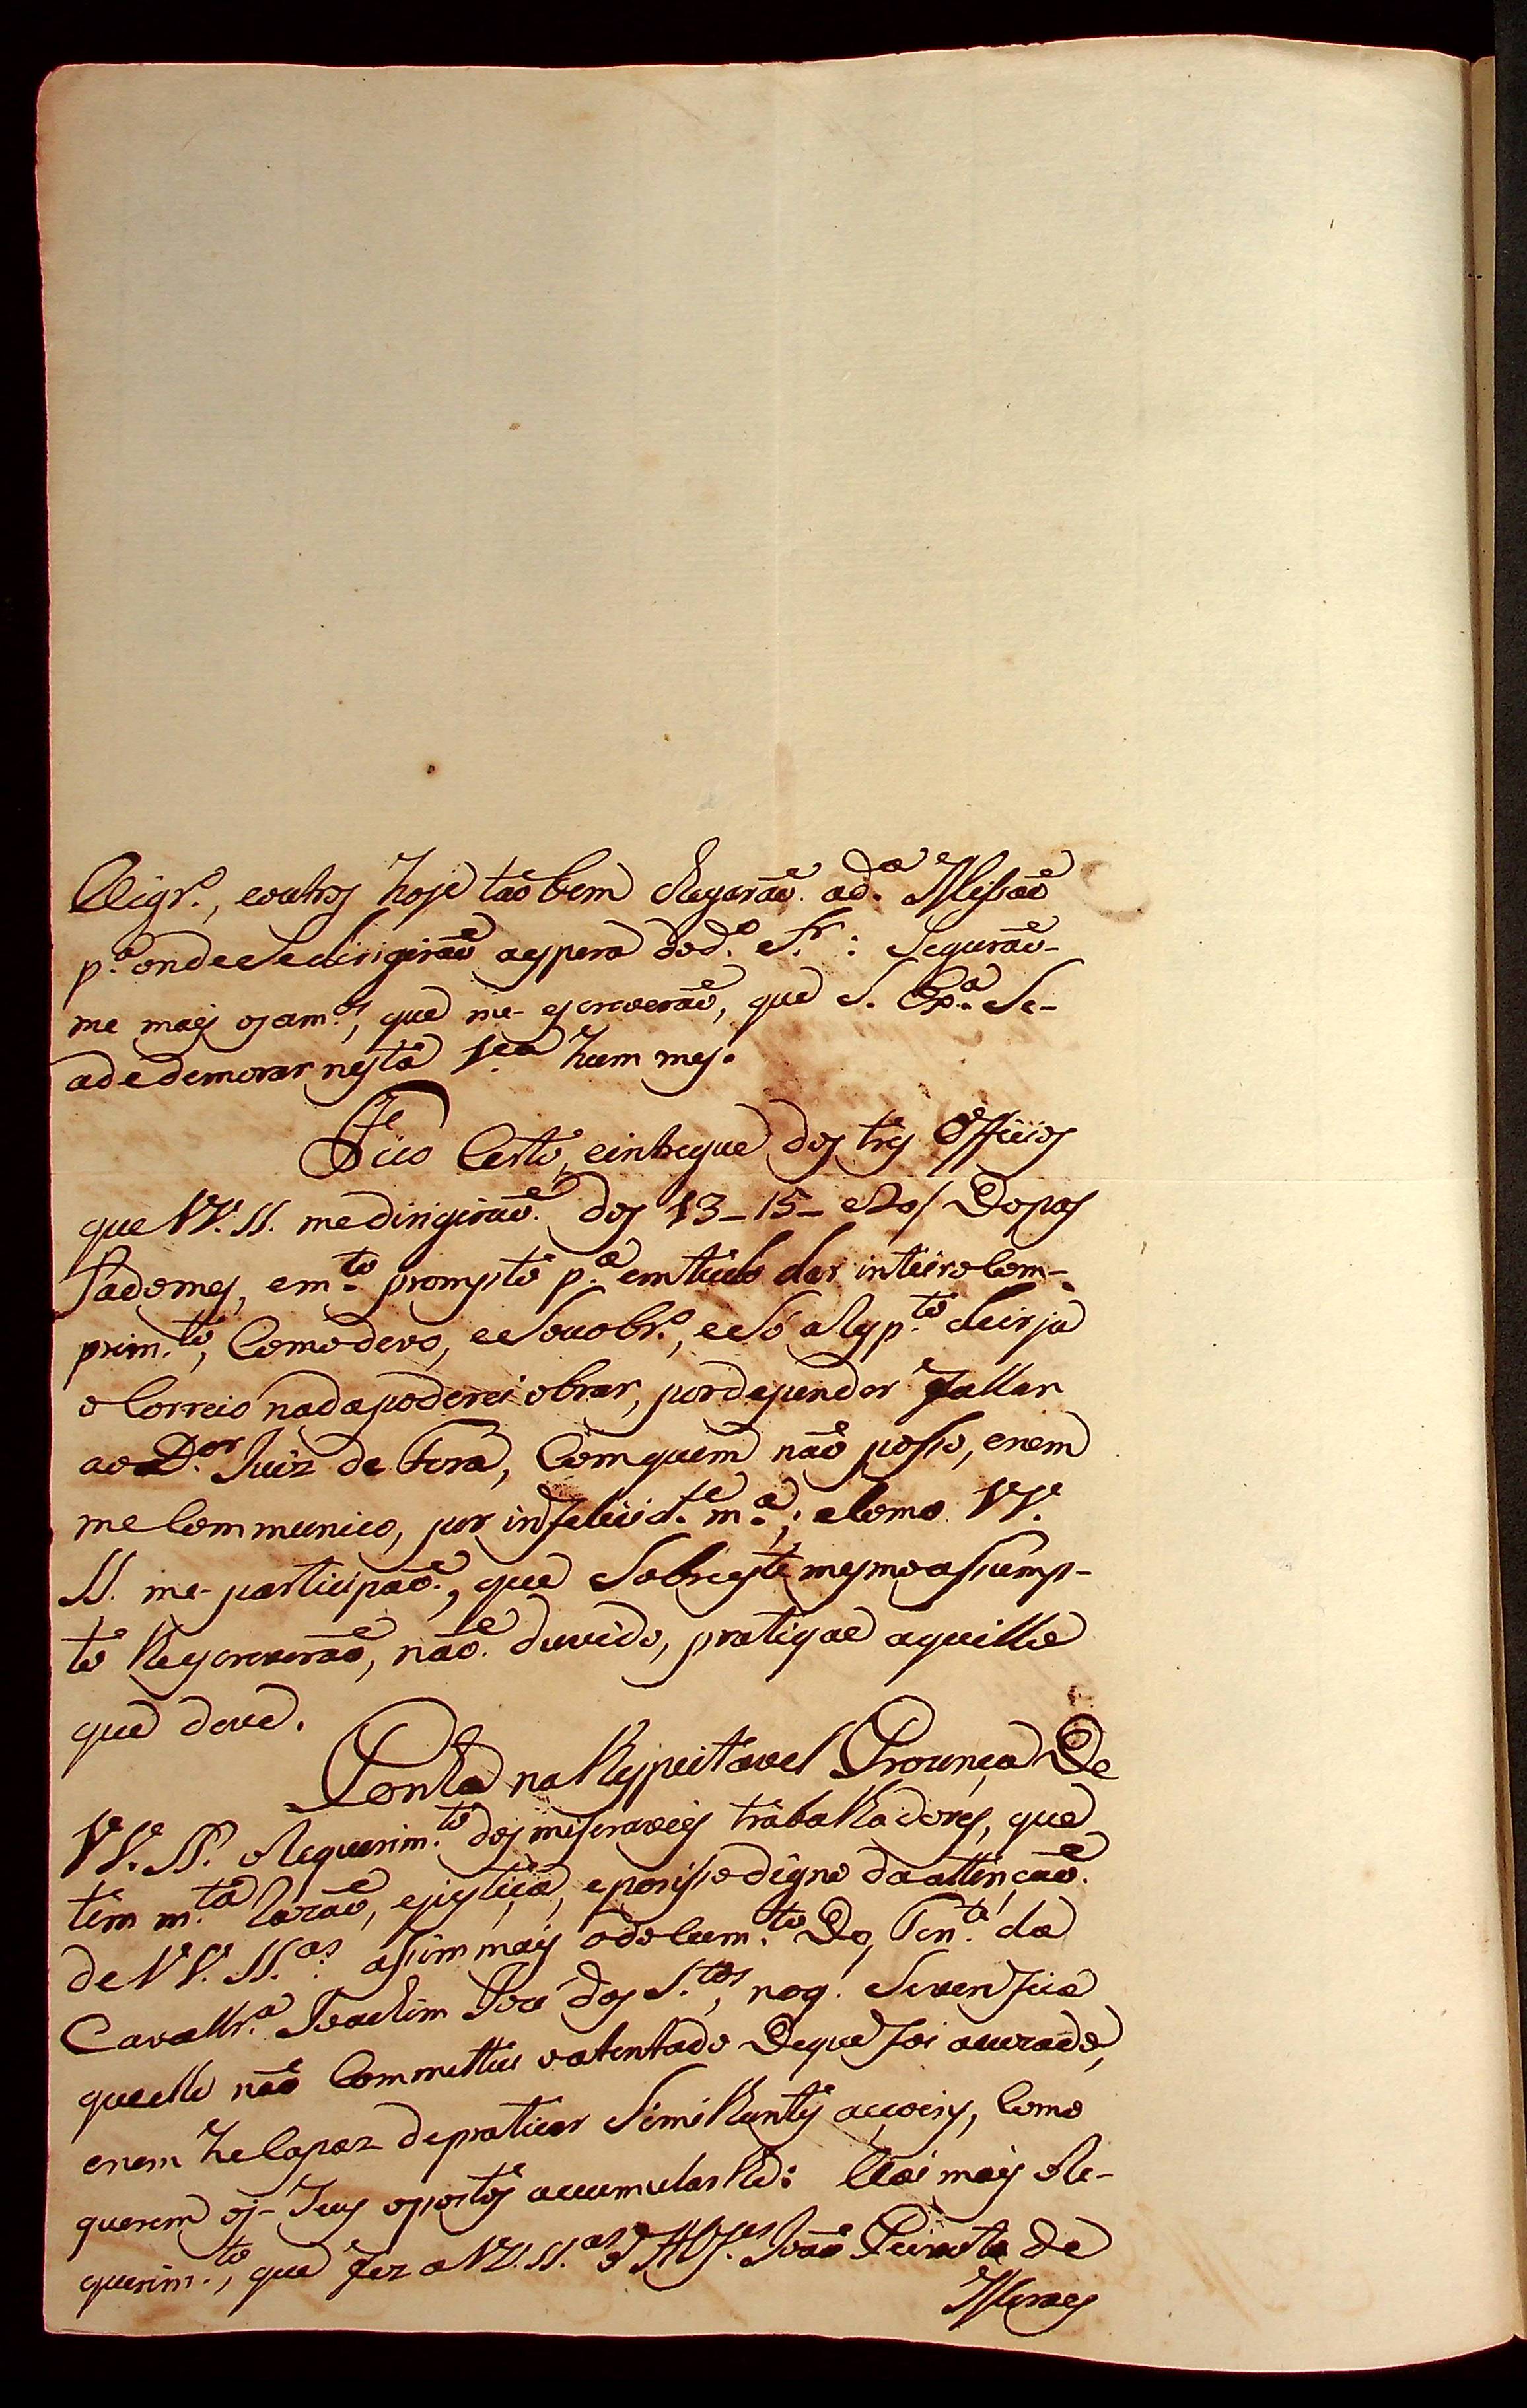 Migr.º, eoutros hoje taõbem chegaraõ. ad.ª Missaõ
p.ª ondeSedirigiraõ aespera dod.º Sr.: Seguraõ-
me mais osam.os, que me-escreveraõ, que S. Ex.ª Se-
adedemorar nesta V.ª hum mes.
Fico Certo, eintregue dos tres Officios
que VV. SS. medirigiraõ. dos 13-15- e20/ Dopas
sadomes, em.to prompto p.ª emtudo dar inteiro Com-
prim.to, Comodevo, eSouobr.º, eSó aResp.to deirja
o Correio nadapoderei obrar, pordepender fallar
ao D.or Juiz de Fora, Comquem naõ posso, enem
me Communico, por infelicid.e m.ª; eComo VV.
SS. me-participaõ, que Sobreeste mesmoassump-
to lhescreveraõ, naõ. duvido, pratique aquillo
que deve.
Ponho naRespeitavel Prezença De
VV. SS. oRequerim.to dosmiseraveis trabalhadores, que
tem m.ta Razaõ, ejustiça, eporissodigno daattençaõ.
deVV. SS.as: assimmais odocum.to Do Ten.te da
Cavallr.ª Joachim Jozé dos S.tos, noq. Severifica
queelle naõ Commetteu oatentado Dequefoi acuzado,
enem heCapaz depraticar Similhantes acçoens, Como
querem os-Seus opostos accumularlhe: Vai mais oRe-
querim.to, que fez aVV. SS.as o Alf.es Joaõ Peixoto de
Moraes